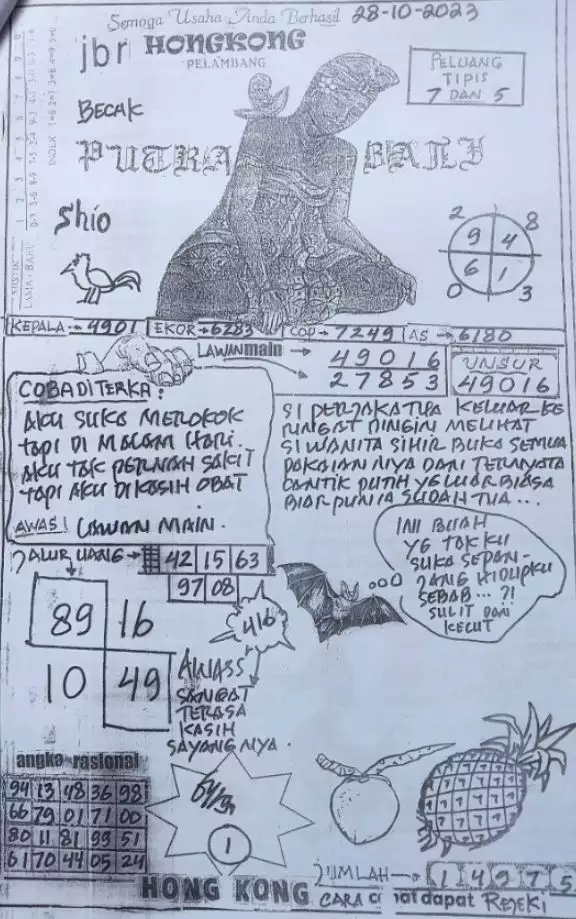 Semoga Usaha Anda Berhasil 28-10-2023
jbr HONGKONG
PELAMBANG
PELUANG
TIPIS
7 DAN 5
BECAK
PUTRA BALI
Shio
2 8
9 4
6 1
0 3
KEPALA 4901 EKOR 6283 COP 7249 AS 6180
LAWAN main
49016
27853
UNSUR
49016
COBA DITERKA:
AKU SUKA MEROKOK
tapi DI MALAM HARI.
AKU TAK PERNAH SAKIT
tapi AKU DIKASIH OBAT
AWAS! LAWAN MAIN.
SI PERJAKA TUA KELUAR KE
DINGIN MELIHAT
SI WANITA SIHIR BUKA SEMUA
PAKAIAN NYA DAN TERNYATA
CANTIK PUTIH YG LUAR BIASA
BIAR PUN IA SUDAH TUA...
JALUR UANG 42 15 63
97 08
89 16
10 49
416
AWASS
SANGAT
TERASA
KASIH
SAYANG NYA.
INI BUAH
YG TAK KU
SUKA SEPAN-
JANG HIDUPKU
SEBAB...?!
SULIT DAN
KECUT
angka rasional
94 13 48 36 98
66 79 01 71 00
80 11 81 99 51
61 70 44 05 24
1
JUMLAH 1 4 9 7 5
HONG KONG CARA dapat REJEKI